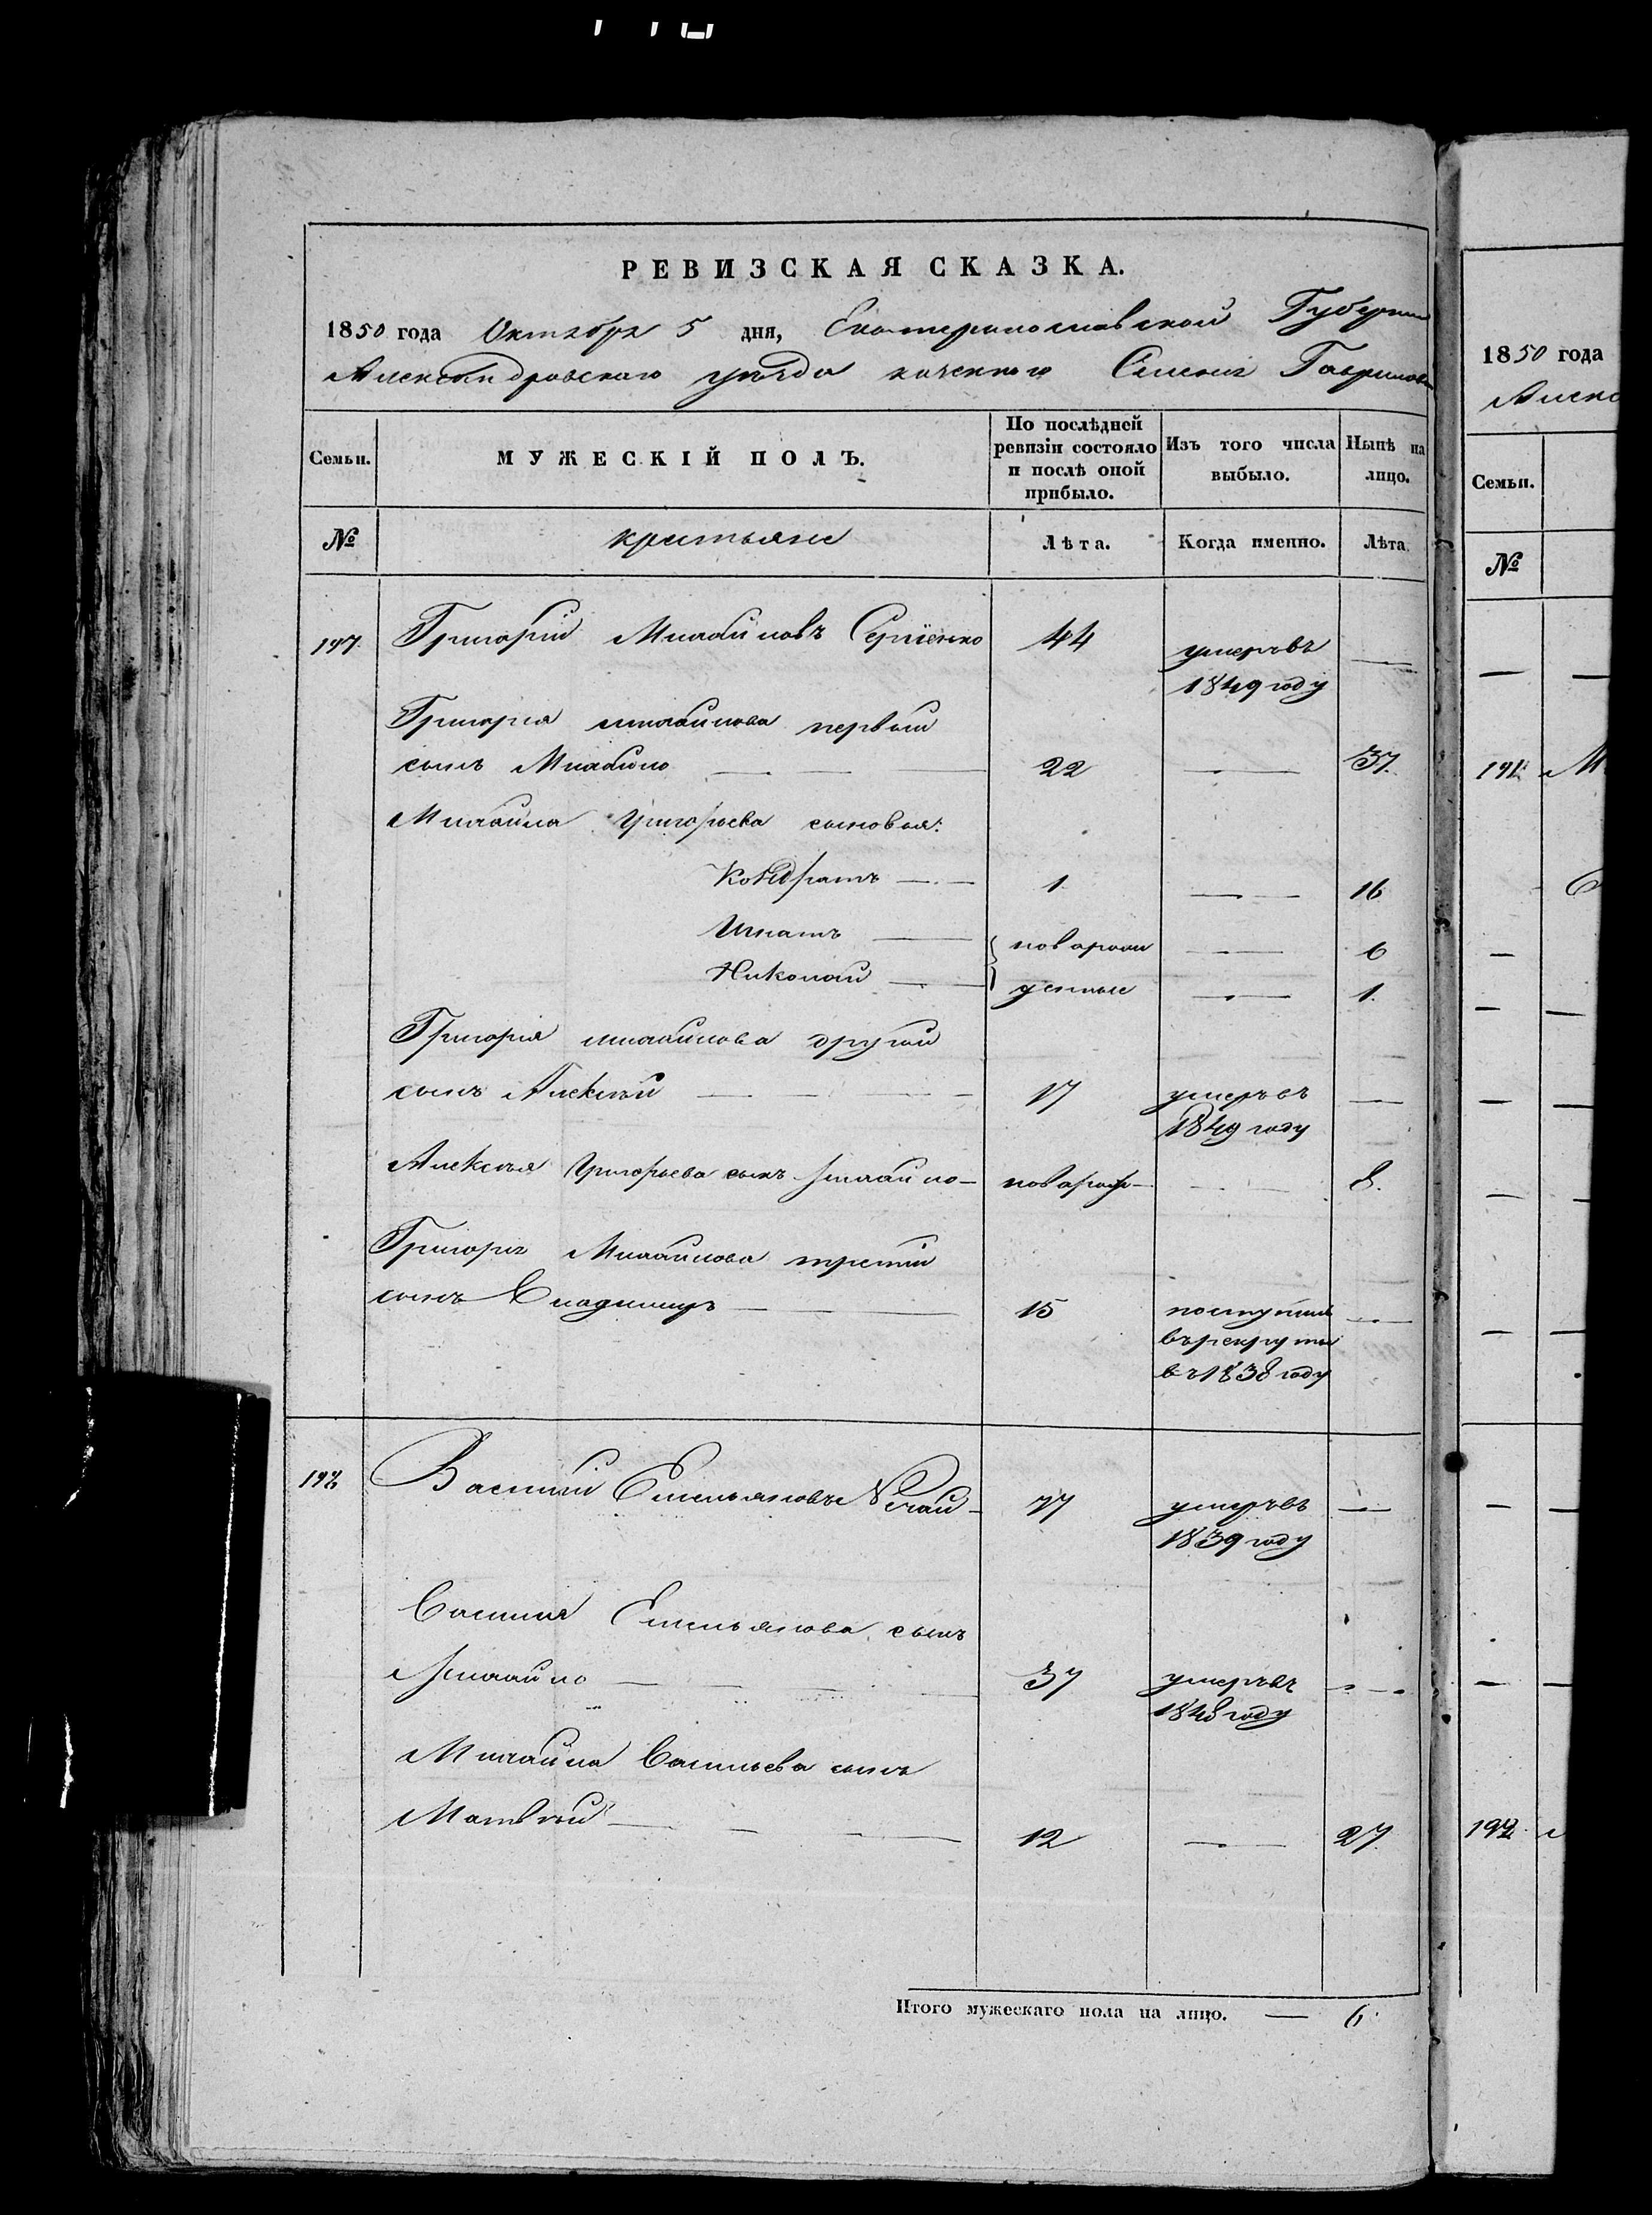 РЕВИЗСКАЯ СКАЗКА.
1850 года Октября 5 дня, Екатеринославской Губернии
Александровскаго уѣзда казеннаго Селенія Гавриловки
Семьи. МУЖЕСКІЙ ПОЛЪ. По послѣдней ревизіи состояло и послѣ оной прибыло. Изъ того числа выбыло. Нынѣ на лицо.
№ крестьяне Лѣта. Когда именно. Лѣта.
197. Григорій Михайловъ Сергіенко 44 умеръ въ —
1849 году
Григорія Михайлова первый
сынъ Михайло — 22 — 37.
Михайла Григорьева сыновья:
Кондратъ — 1 — 16
Игнатъ — новорож — 6
Николай — денные — 1.
Григорія Михайлова другой
сынъ Алексѣй — 17 умеръ въ —
1849 году
Алексѣя Григорьева сынъ Михайло — новорож — — 8.
Григорія Михайлова третій
сынъ Владимиръ — 15 поступилъ —
въ рекруты
въ 1838 году
198 Василій Емельяновъ Нечай — 77 умеръ въ —
1839 году
Василія Емельянова сынъ
Михайло — 37 умеръ въ —
1848 году
Михайла Васильева сынъ
Матвѣй — 12 — 27.
Итого мужескаго пола на лицо. — 6
1850 года
Алекс
Семьи.
№